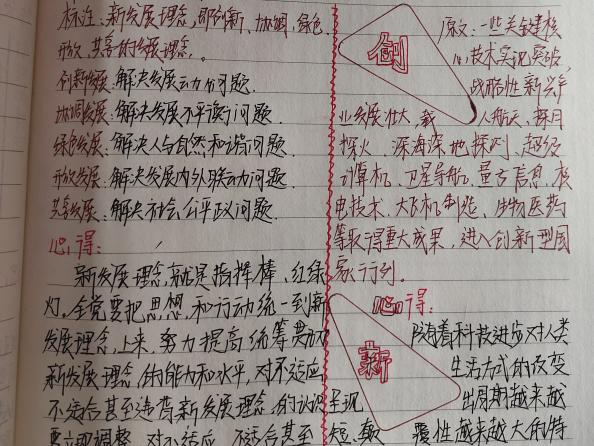 标注：新发展理念，即创新、协调、绿色、
开放、共享的发展理念。
创新发展：解决发展动力问题.
协调发展：解决发展不平衡问题.
绿色发展：解决人与自然和谐问题.
开放发展：解决发展内外联动问题.
共享发展：解决社会公平正义问题.
心得：
新发展理念，就是指挥棒、红绿
灯。全党要把思想和行动统一到新
发展理念上来，努力提高统筹贯彻
新发展理念的能力和水平，对不适应
不适合甚至违背新发展理念的认识
要立即调整，对不适应、不适合甚至
创
原文：一些关键核
心技术实现突破，
战略性新兴产
业发展壮大，载人航天、探月
探火、深海深地探测、超级
计算机、卫星导航、量子信息、核
电技术、大飞机制造、生物医药
等取得重大成果，进入创新型国
家行列。
心得：
新
随着科技进步对人类
生活方式的改变
呈现出周期越来越
短、颠覆性越来越大的特